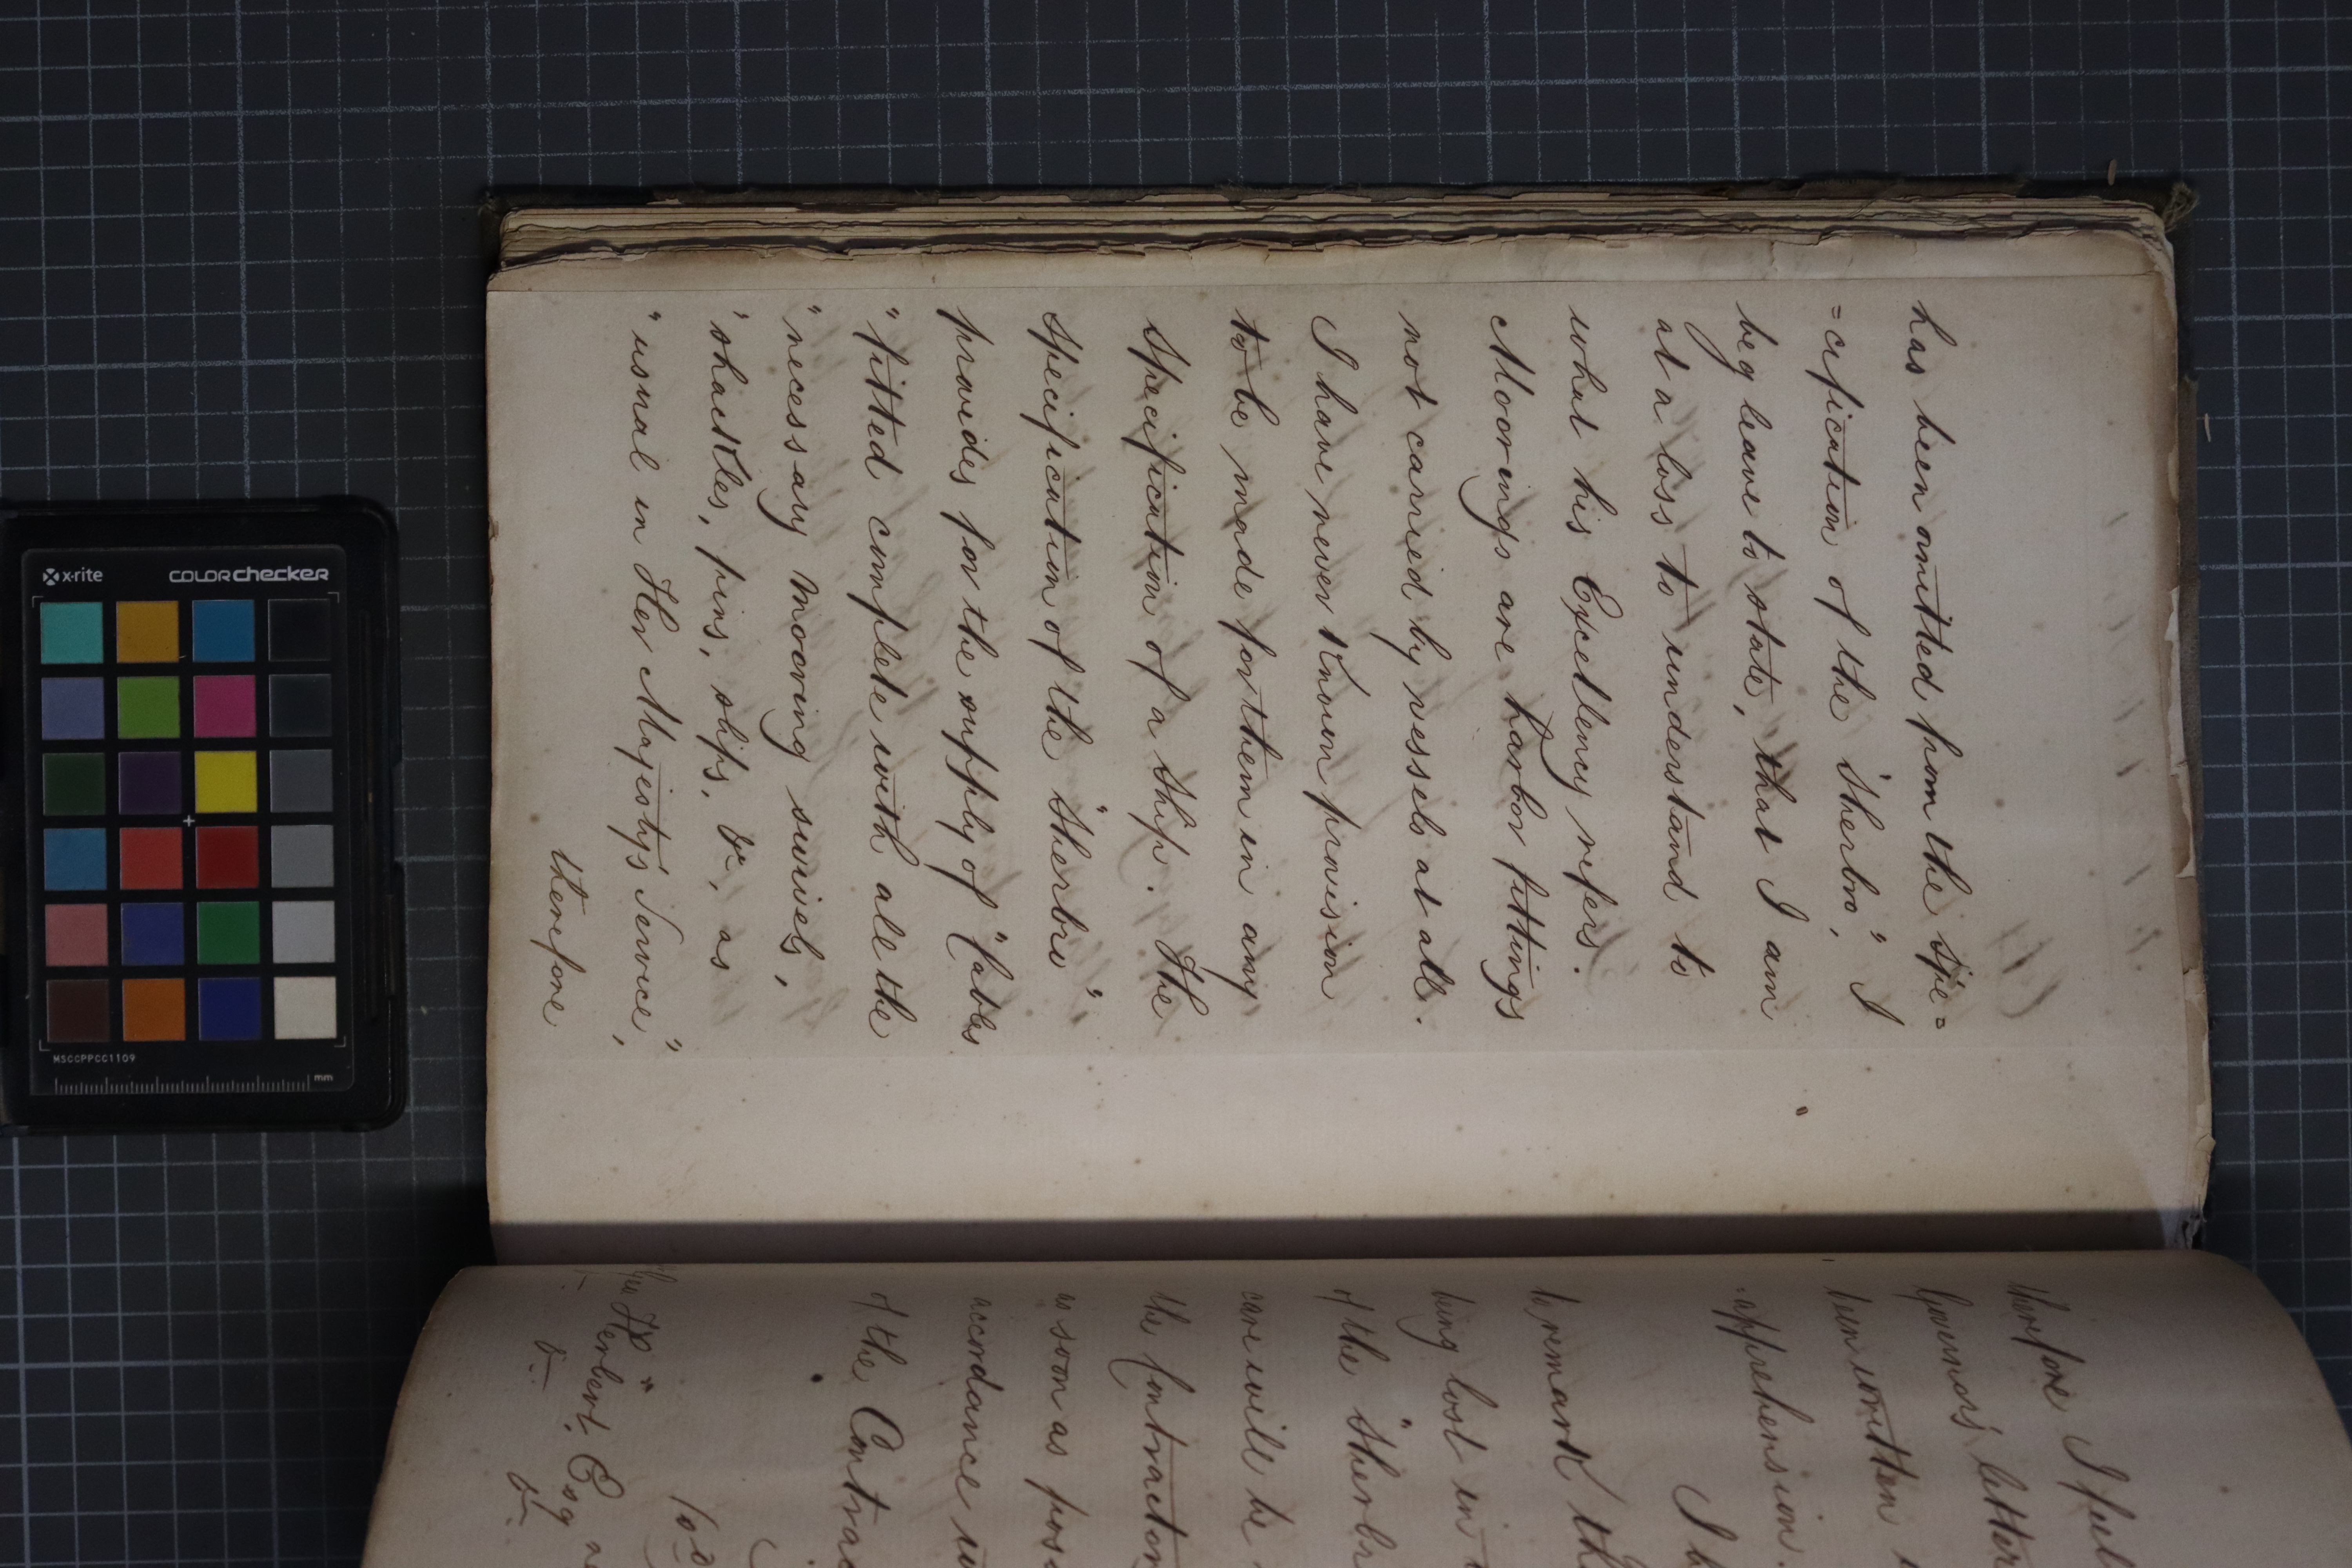 has been omitted from the Spe=
=cification of the "Sherbro", I
beg leave to state, that I am
at a loss to understand to
what his Excellency refers.
Moorings are harbor fittings
not carried by vessels at all.
I have never known provision
to be made for them in any
Specification of a Ship. The
Specification of the "Sherbro"
provides for the supply of "Cables
"fitted complete with all the
"necessary mooring swivels,
'shackles, pins, slips, &c, as
"usual in Her Majesty's Service",
therefore
therefore I feel
Governor's letter
been written
=apprehension.
I b
to remark th
being lost in
of the "Sherbr
care will be
the Contractor
as soon as pos
accordance w
of the Contrac
Herbert Esq
&c &c
x-rite
COLORchecker
MSCCPPCC1109
mm